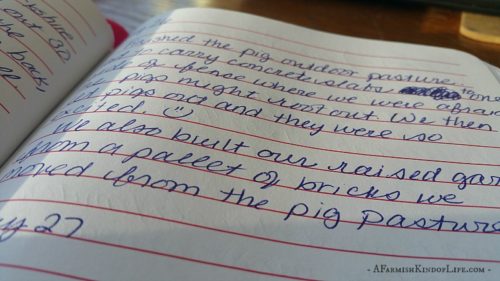 out 30
back,
the pig outdoor pasture.
to carry concrete slats
of fence where we were afraid
pigs might root out. We then
pigs out and they were so
☺
We also built our raised gar
from a pallet of bricks we
moved from the pig pasture
y 27
- AFarmishKindofLife.com -